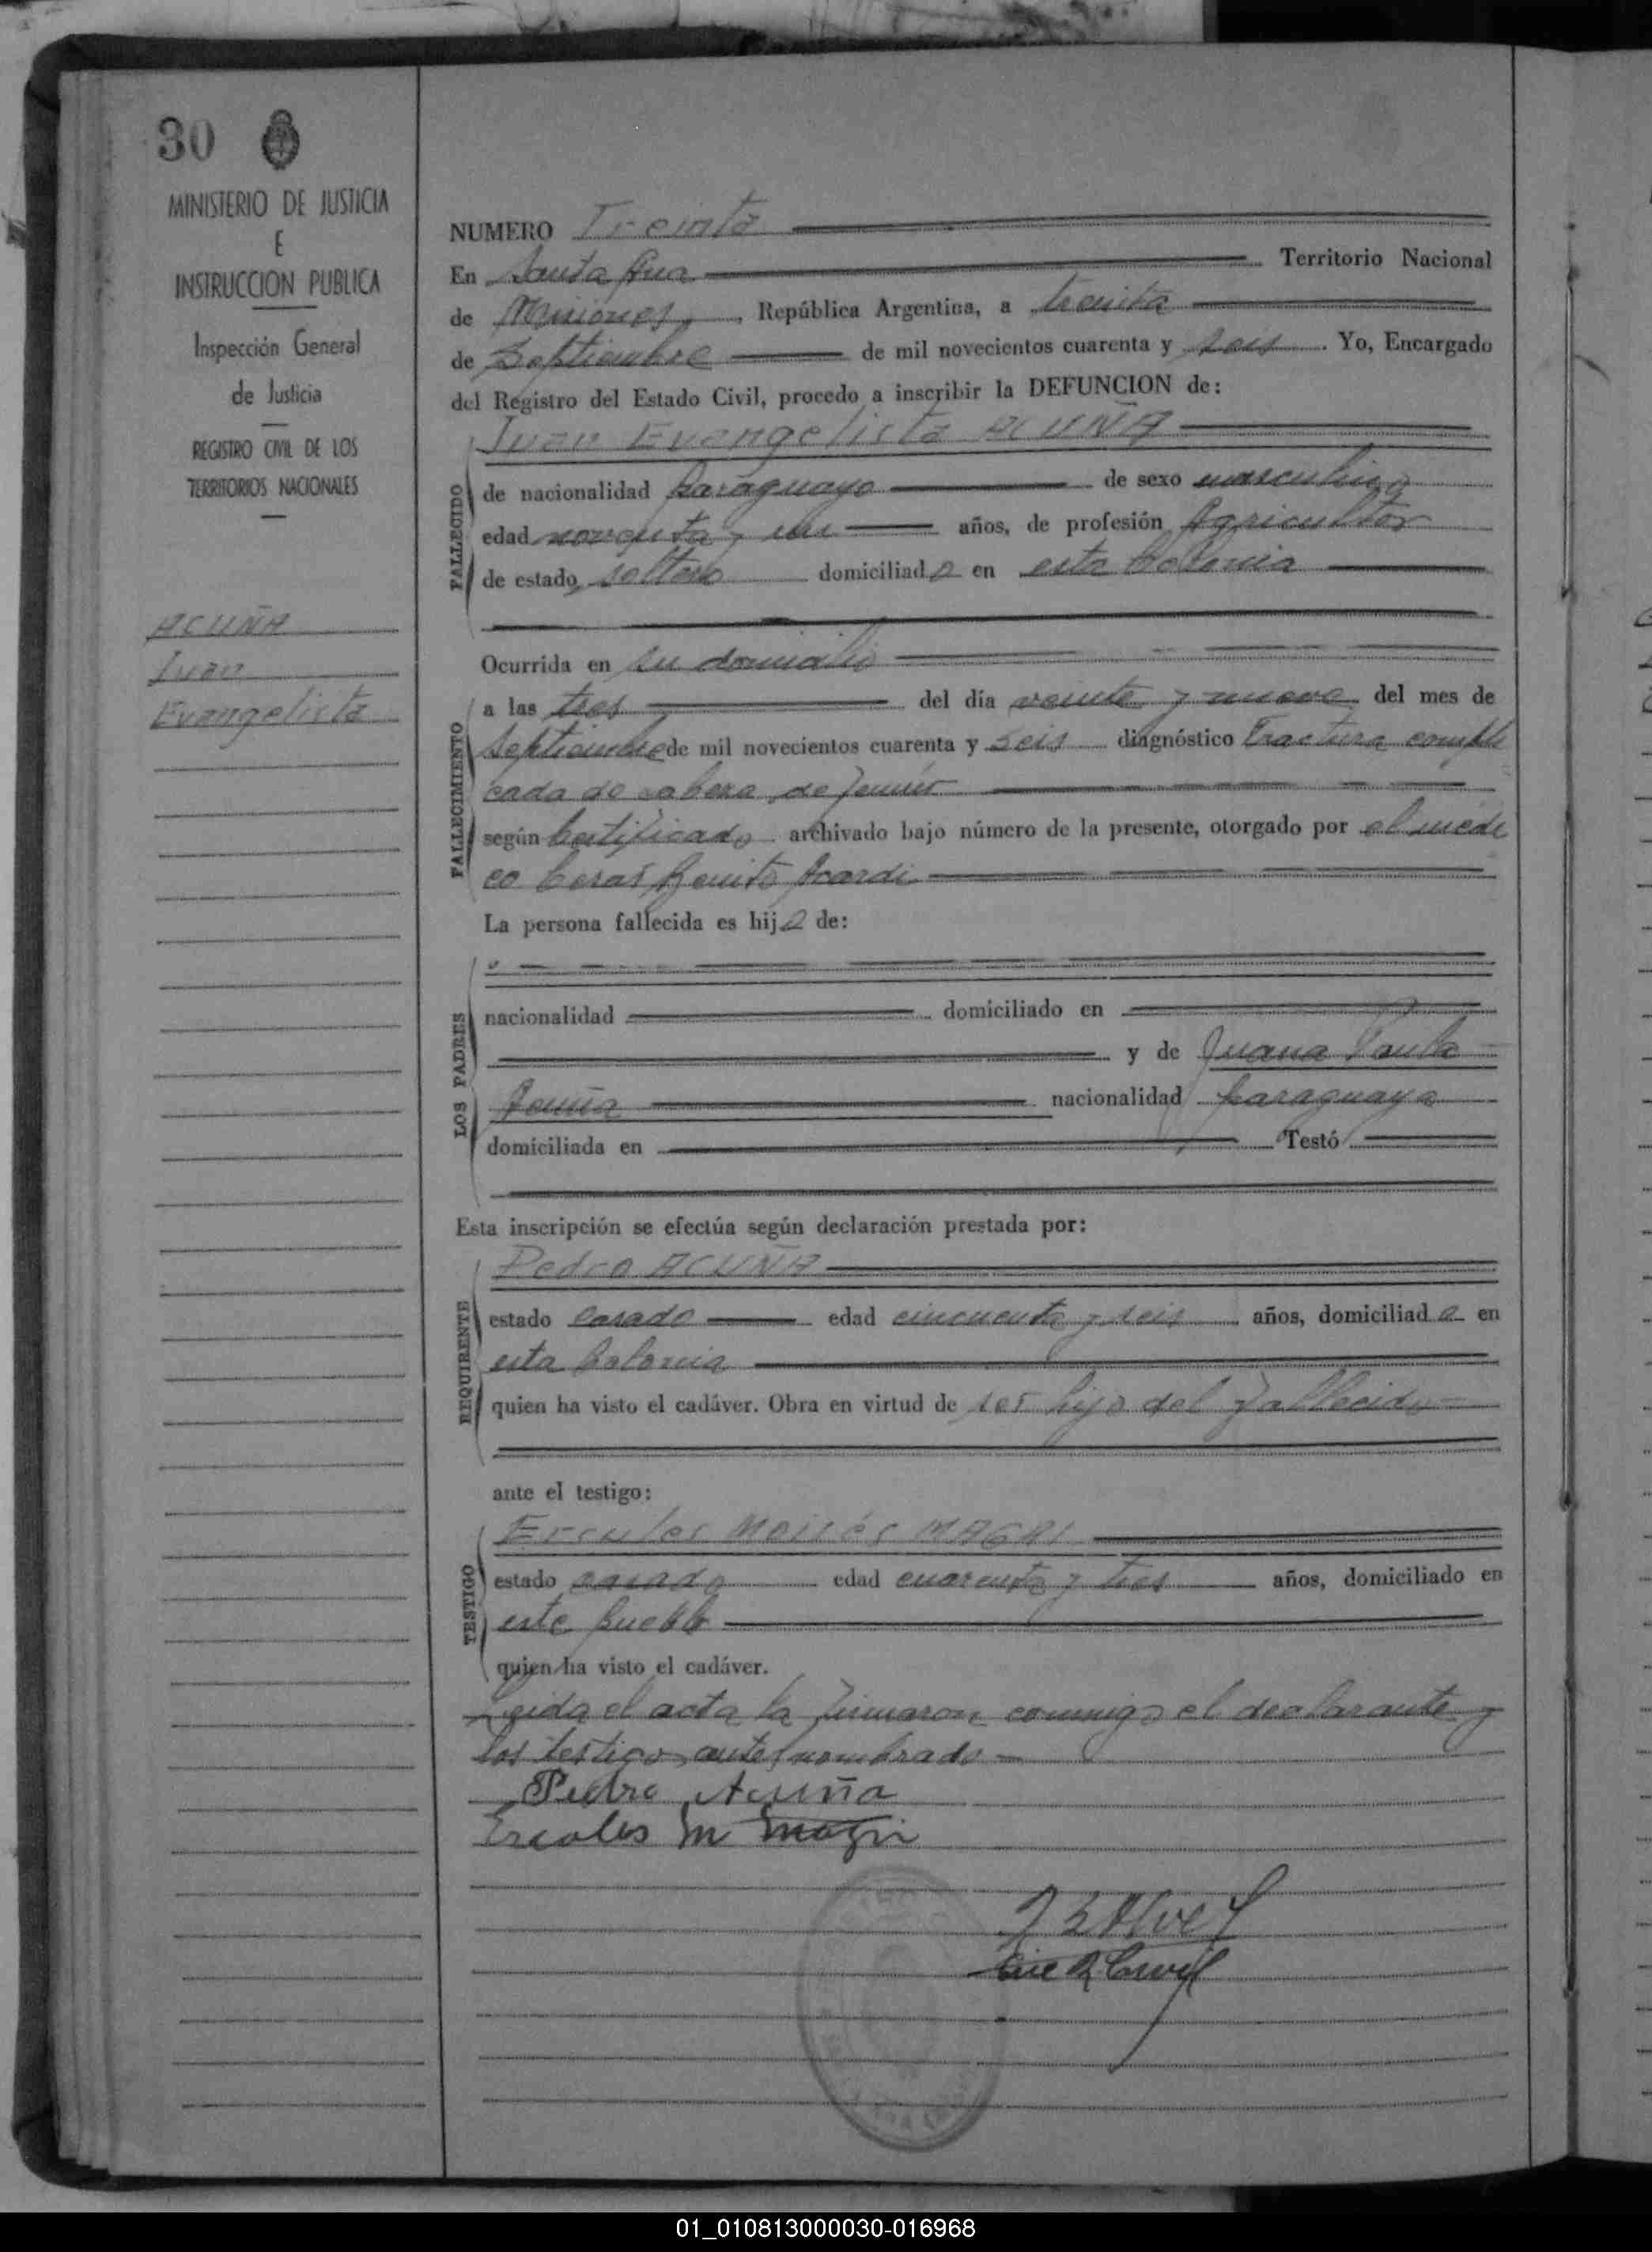 30
MINISTERIO DE JUSTICIA
E
INSTRUCCION PUBLICA
Inspección General
de Justicia
REGISTRO CIVIL DE LOS
TERRITORIOS NACIONALES
ACUÑA
Juan
Evangelista
NUMERO Treinta
En Santa Ana Territorio Nacional
de Misiones, República Argentina, a treinta
de Septiembre de mil novecientos cuarenta y seis. Yo, Encargado
del Registro del Estado Civil, procedo a inscribir la DEFUNCION de:
Juan Evangelista ACUÑA
FALLECIDO
de nacionalidad paraguaya de sexo masculino
edad noventa y un años, de profesión Agricultor
de estado soltero domiciliado en esta Colonia
Ocurrida en su domicilio
FALLECIMIENTO
a las tres del día veinte y nueve del mes de
Septiembre de mil novecientos cuarenta y seis diagnóstico Fractura compli
cada de cabeza de femur
según certificado archivado bajo número de la presente, otorgado por el médi
co Cesar Benito Acardi
La persona fallecida es hijo de:
LOS PADRES
nacionalidad domiciliado en
y de Juana Paula
Acuña nacionalidad paraguaya
domiciliada en Testó
Esta inscripción se efectúa según declaración prestada por:
Pedro ACUÑA
REQUIRENTE
estado casado edad cincuenta y seis años, domiciliado en
esta Colonia
quien ha visto el cadáver. Obra en virtud de ser hijo del fallecido
ante el testigo:
Ercules Moisés MAGRI
TESTIGO
estado casado edad cuarenta y tres años, domiciliado en
este pueblo
quien ha visto el cadáver.
Leida el acta la firmaron conmigo el declarante y
los testigo antes nombrado
Pedro Acuña
Ercoles M Magri
01_010813000030-016968